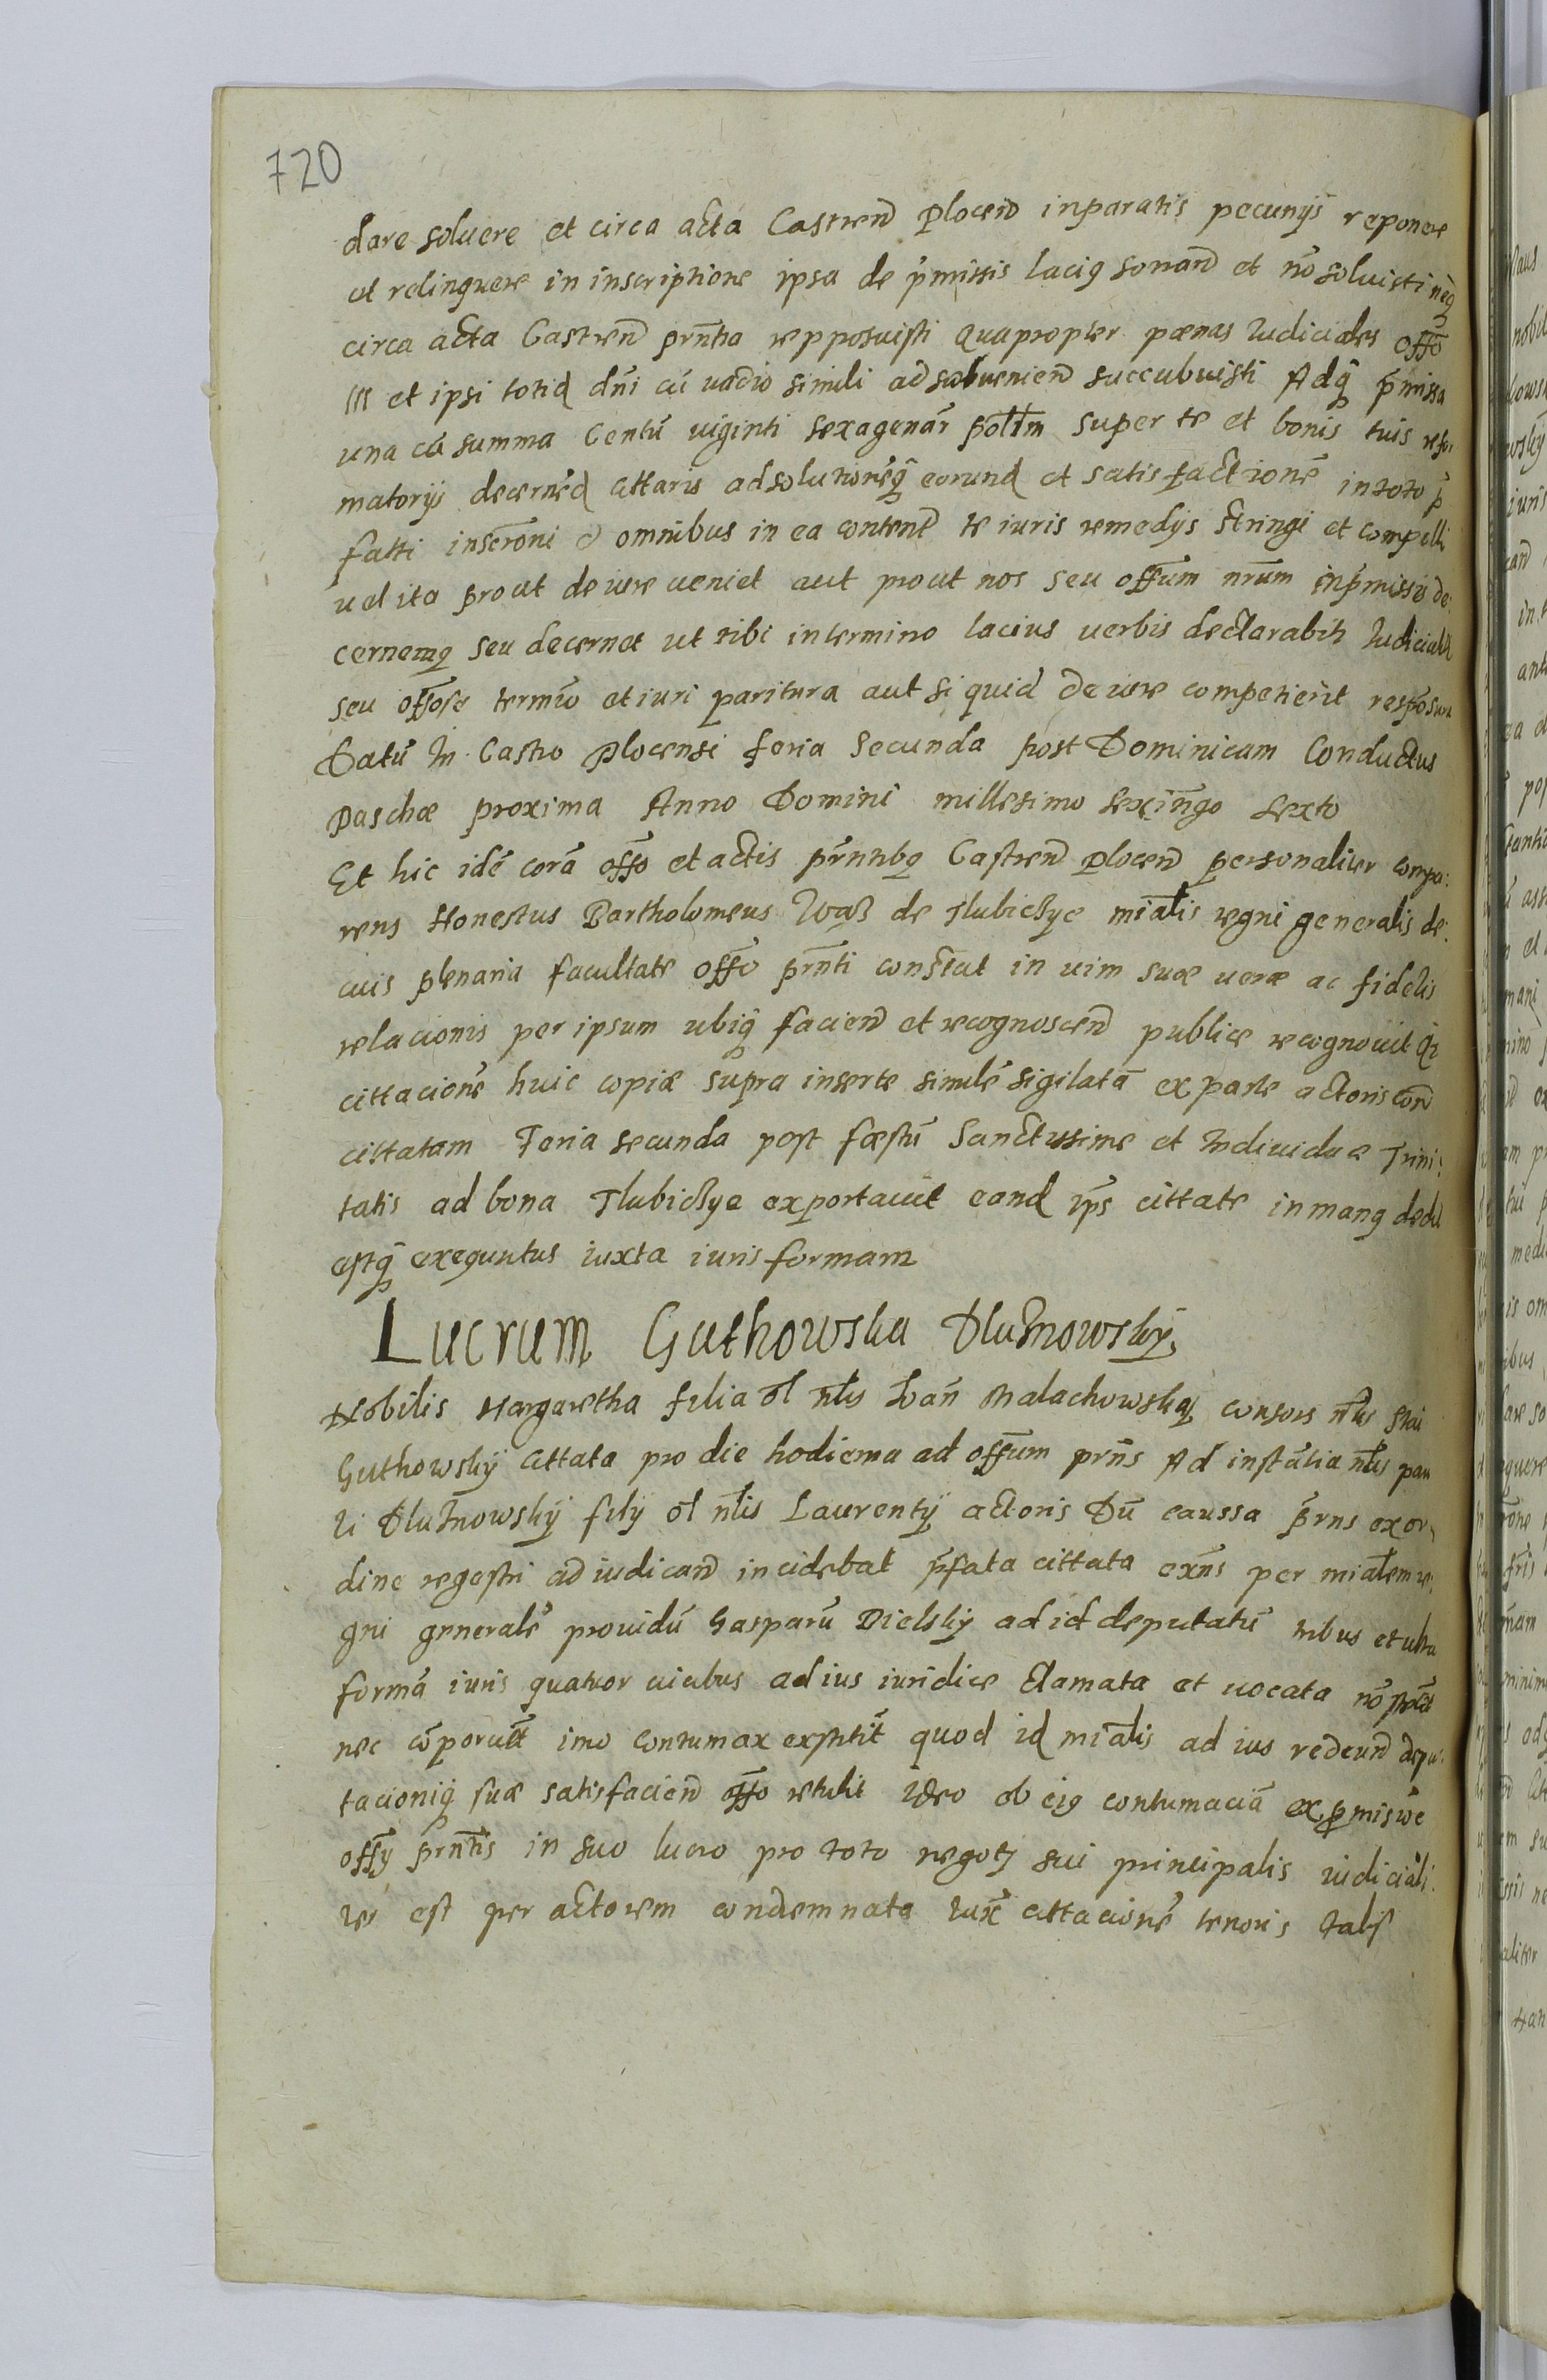 720
dare soluere et circa acta Castren̄ Plocen̄ inparatis pecunijs reponere
et relinquere in inscriptione ipsa de p̄missis lacig sonan̄ et nō soluisti neq̄
circa acta Castren̄ prn̄tia repposuisti Quapropter pænas Iudiciales offō
III et ipsi totid dn̄i cū uadio simili ad subuenien̄ succubuisti Adq̄ p̄missa
una cū summa Centū uiginti sexagenār pol̄lm super te et bonis tuis refor
matorijs decernēd cittaris adsolutionēq̄ eorund et satisfactionē in toto p̄
fatti inscrōni & omnibus in ea conten̄t te iuris remedijs stringi et compelli
uel ita prout de iure ueniet aut prout nos seu offūm nr̄um inp̄missis de:
cernemq seu decernet ut tibi intermino lacius uerbis declarabitz Iudicialr
seu offose termīo et iuri paritura aut si quid de iure competierit respōsura
Datū In Castro Plocensi feria secunda post Dominicam Conductus
Paschæ proxima Anno Domini millesimo sexin̄go sexto
Et hic idē corā offō et actis prn̄tibq Castren̄ Plocen̄ personaliter compa:
rens Honestus Bartholomeus Waß de Tlubicßye mīalis regni generalis de:
cuis plenaria facultate offō prn̄ti constat in uim suæ ueræ ac fidelis
relacionis per ipsum ubiq̄ facien̄ et recognoscen̄ publice recognouit Qz
cittacionē huic copiæ supra inserte similē sigilatā ex parte actoris con̄
cittatam Feria secunda post fæstū Sanctissime et Indiuiduæ Trini:
tatis ad bona Tlubicßye exportauit eand ip̄s cittate in manq dedit
estq̄ exeguutus iuxta iuris formam
Lucrum Guthowska Dlutnowsky
Nobilis Margaretha filia ol̄ nl̄is Ioan̄ Malachowskq consors nl̄is Stai
Guthowsky Cittata pro die hodierna ad offūm prn̄s Ad instātia nl̄is pau
li Dlutnowsky fily ol̄ nl̄is Laurentij actoris Dū caussa prn̄s ex or
dine regestri ad iudican̄ incidebat p̄fata cittata exn̄s per mīalem re:
gni generalē prouidū Gasparū Dielsky ad id deputatū tribus et ultra
formā iuris quatuor uicibus ad ius iuridice clamata et uocata nō stetit
nec cōparuit imo contumax exstitit quod id mīalis ad ius redeun̄ depu:
tacioniq̄ suæ satisfacien̄ offō retulit Ideo ob eiq contumaciā ex p̄misione
offy prn̄tis in suo lucro pro toto negotj sui principalis iudiciali:
ter est per actorem condemnata Iux cittacionē tenoris talis